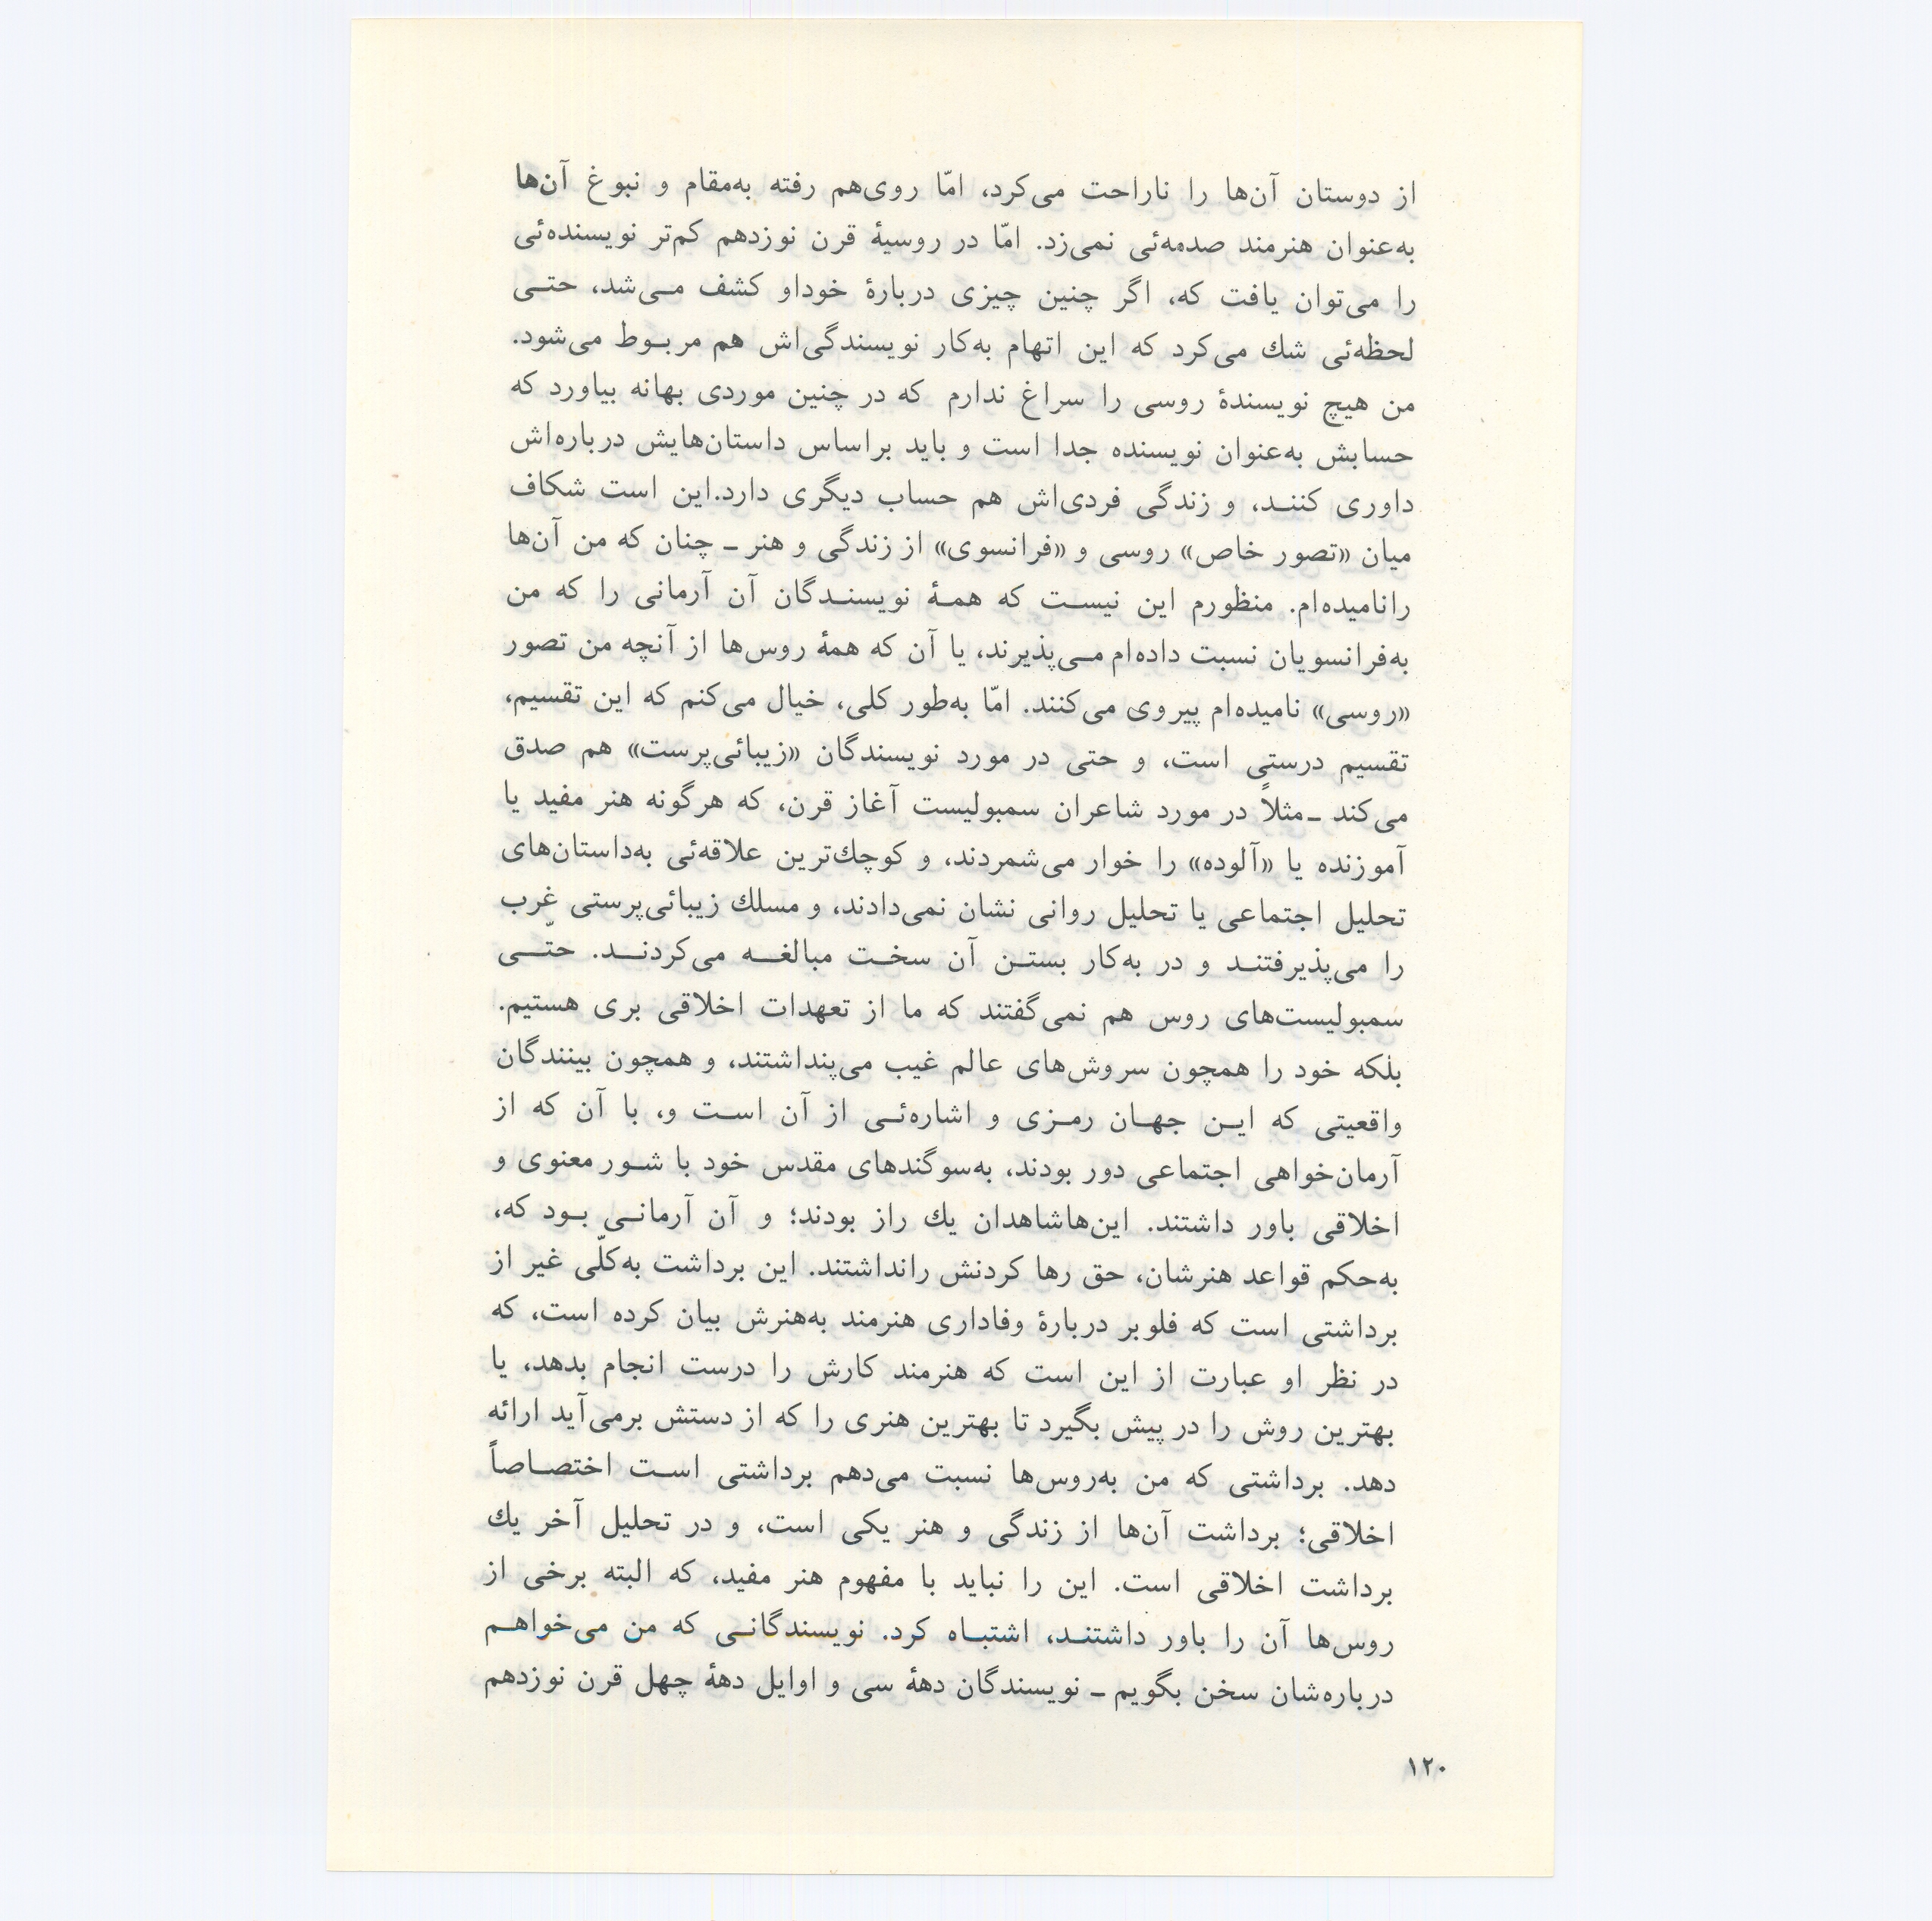 از دوستان آن‌ها را ناراحت می‌کرد، امّا روی‌هم رفته به‌مقام و نبوغ آن‌ها
به‌عنوان هنرمند صدمه‌ئی نمی‌زد. امّا در روسیهٔ قرن نوزدهم کم‌تر نویسنده‌ئی
را می‌توان یافت که، اگر چنین چیزی دربارهٔ خوداو کشف مـی‌شد، حتـی
لحظه‌ئی شك می‌کرد که این اتهام به‌کار نویسندگی‌اش هم مربـوط می‌شود.
من هیچ نویسندهٔ روسی را سراغ ندارم که در چنین موردی بهانه بیاورد که
حسابش به‌عنوان نویسنده جدا است و باید براساس داستان‌هایش درباره‌اش
داوری کننـد، و زندگی فردی‌اش هم حساب دیگری دارد.این است شکاف
میان «تصور خاص» روسی و «فرانسوی» از زندگی و هنر ـ چنان که من آن‌ها
رانامیده‌ام. منظورم این نیسـت که همـهٔ نویسنـدگان آن آرمانی را که من
به‌فرانسویان نسبت داده‌ام مـی‌پذیرند، یا آن که همهٔ روس‌ها از آنچه من تصور
«روسی» نامیده‌ام پیروی می‌کنند. امّا به‌طور کلی، خیال می‌کنم که این تقسیم،
تقسیم درستی است، و حتی در مورد نویسندگان «زیبائی‌پرست» هم صدق
می‌کند ـ مثلاً در مورد شاعران سمبولیست آغاز قرن، که هرگونه هنر مفید یا
آموزنده یا «آلوده» را خوار می‌شمردند، و کوچك‌ترین علاقه‌ئی به‌داستان‌های
تحلیل اجتماعی یا تحلیل روانی نشان نمی‌دادند، و مسلك زیبائی‌پرستی غرب
را می‌پذیرفتنـد و در به‌کار بستـن آن سخـت مبالغـه می‌کردنـد. حتّـی
سمبولیست‌های روس هم نمی‌گفتند که ما از تعهدات اخلاقی بری هستیم.
بلکه خود را همچون سروش‌های عالم غیب می‌پنداشتند، و همچون بینندگان
واقعیتی که ایـن جهـان رمـزی و اشاره‌ئـی از آن اسـت و، با آن که از
آرمان‌خواهی اجتماعی دور بودند، به‌سوگندهای مقدس خود با شـور معنوی و
اخلاقی باور داشتند. این‌هاشاهدان یك راز بودند؛ و آن آرمانـی بـود که،
به‌حکم قواعد هنرشان، حق رها کردنش رانداشتند. این برداشت به‌کلّی غیر از
برداشتی است که فلوبر دربارهٔ وفاداری هنرمند به‌هنرش بیان کرده است، که
در نظر او عبارت از این است که هنرمند کارش را درست انجام بدهد، یا
بهترین روش را در پیش بگیرد تا بهترین هنری را که از دستش برمی‌آید ارائه
دهد. برداشتی که من به‌روس‌ها نسبت می‌دهم برداشتی اسـت اختصـاصاً
اخلاقی؛ برداشت آن‌ها از زندگی و هنر یکی است، و در تحلیل آخر یك
برداشت اخلاقی است. این را نباید با مفهوم هنر مفید، که البته برخی از
روس‌ها آن را باور داشتنـد، اشتبـاه کرد. نویسندگانـی که من می‌خواهـم
درباره‌شان سخن بگویم ـ نویسندگان دههٔ سی و اوایل دههٔ چهل قرن نوزدهم
۱۲۰